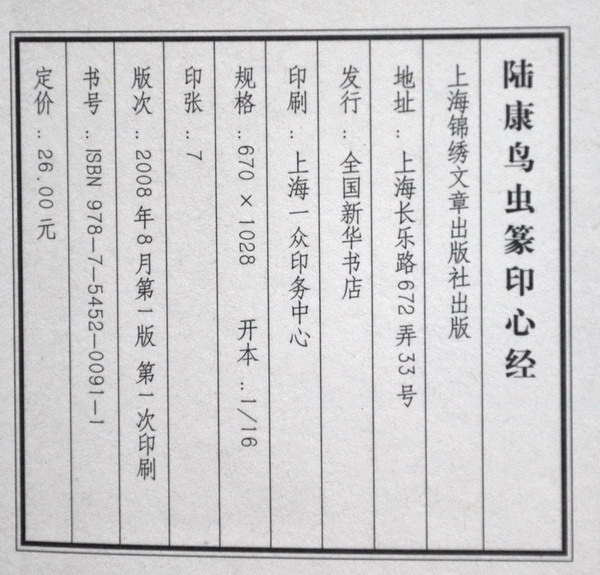 陆康鸟虫篆印心经
上海锦绣文章出版社出版
地址：上海长乐路672弄33号
发行：全国新华书店
印刷：上海一众印务中心
规格：670×1028 开本：1/16
印张：7
版次：2008年8月第1版 第一次印刷
书号：ISBN 978-7-5452-0091-1
定价：26.00元